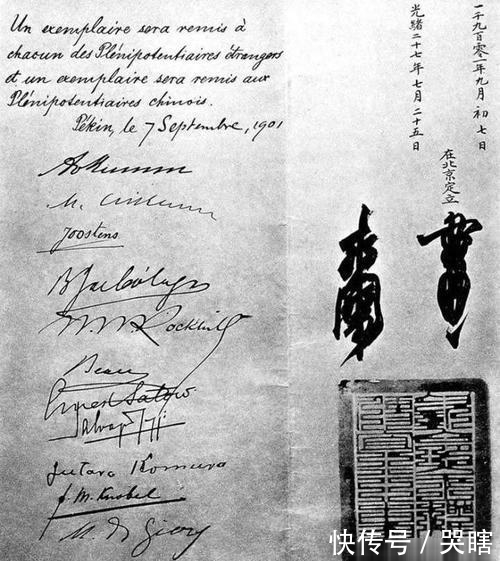 Un exemplaire sera remis à
chacun des Plénipotentiaires étrangers
et un exemplaire sera remis aux
Plénipotentiaires chinois.
Pékin, le 7 Septembre, 1901
Joostens
W.W. Rockhill
Beau
Ernest Satow
Salvago Raggi
Jutaro Komura
F. M. Knobel
M. de Giers
一千九百零一年九月初七
光緒二十七年七月二十五日
在北京定立
快传号 / 哭瞎